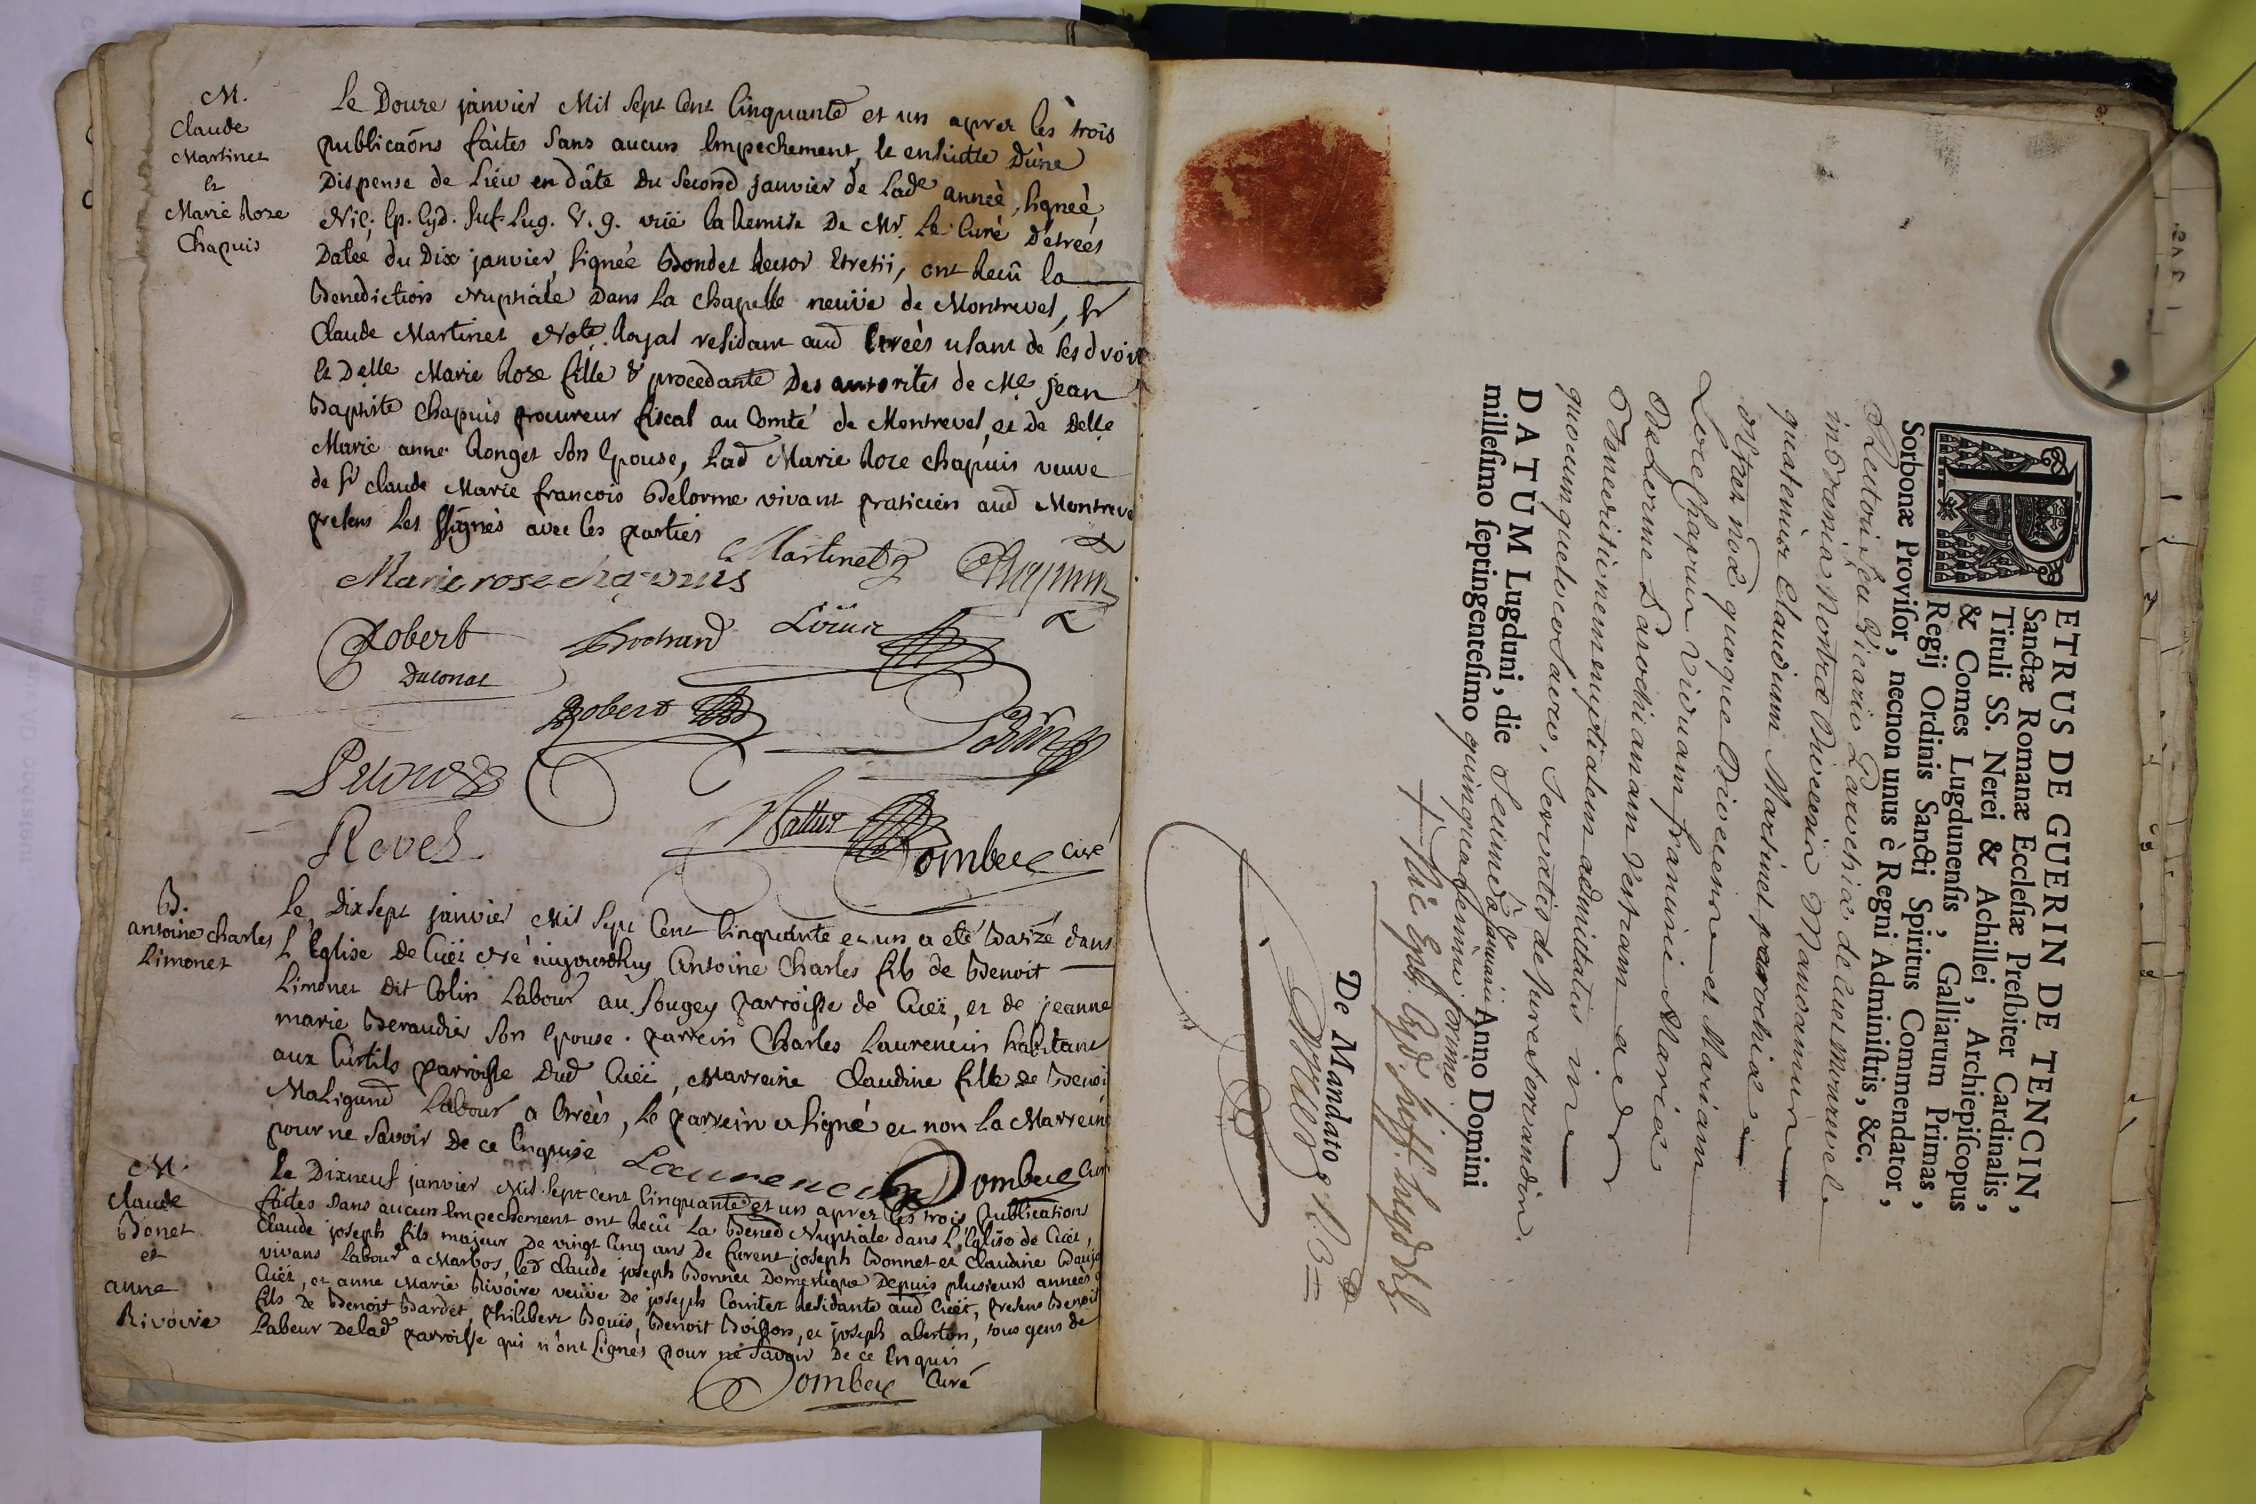 M.
Claude
Martinet
et
Marie Roze
Chapuis
Le Douze janvier Mil sept Cent Cinquante et un aprez les trois
publicaõns faites sans aucun Empechement, et ensuitte d'une
Dispense de Lieu en dâte du second janvier de lade année, signeé
Nic. Ep. Eyd. suf. Lug. V. g. vûe la Remise De Mr. Le Curé d'etreés
Datée du Dix janvier, signeé Bondet Rector Etresii, ont Reçû la
Benediction Nuptiale Dans la Chapelle neuve de Montrevel, Sr
Claude Martinet Notre. Royal residant aud Etreés usant de ses droits
Et Delle Marie Roze fille & procedante Des autorités de Me jean
Baptiste Chapuis procureur fiscal au Comté de Montrevel, et de Delle
Marie anne Ronget son Epouse, Lad Marie Roze chapuis veuve
de Sr Claude Marie françois Delorme vivant praticien aud Montrevel
presens Les sûgnés avec les parties
Martinet
Marie rose chapuis
Robert
Duconat
Brochand
Robert
Revel
Dombey Curé
B.
antoine charles
Limonet
Le Dix sept janvier Mil Sept Cent Cinquante et un a eté Batizé dans
L'Eglise de Cuët Né aujourdhuy Antoine Charles fils de Benoit
Limonet dit Colin Labourr au Sougey parroisse de Cuët, et de jeanne
marie Beraudier son Epouse. parrein Charles Laurencin habitant
aux Curtils parroisse dud Cuët, Marreine Claudine fille de Benoit
Maligand Labourr a Etreés, Le parrein a signé et non la Marreine
pour ne savoir De ce Enquise
Laurencin Dombey Curé
M.
Claude
Bonet
et
anne
Rivoire
Le Dixneuf janvier Mil sept cent Cinquante et un aprez les trois publication
faites sans aucun Empechement ont Reçû La Bened Nuptiale dans L'Eglise de Cuët,
Claude joseph fils majeur De vingt Cinq ans De furent joseph Bonnet et Claudine
vivans Labourr a Marbos, led Claude joseph Bonnet Domestique Depuis plusieurs années
Cuët, et anne Marie Rivoire veuve De joseph Comtet Residante aud Cuët, presens Benoit
fils De Benoit Bardet, Philibert Bouis, Benoit Boisson, et joseph, tous gens de
Labeur De lad parroisse qui n'ont signés pour ne savoir De ce Enquis
Dombey Curé
PETRUS DE GUERIN DE TENCIN,
Sanctæ Romanæ Ecclesiæ Presbiter Cardinalis,
Tituli SS. Nerei & Achillei, Archiepiscopus
& Comes Lugdunensis, Galliarum Primas,
Regij Ordinis Sancti Spiritus Commendator,
Sorbonæ Provisor, necnon unus è Regni Administris, &c.
Rectori seu Vicario Parochiæ de Cuet Montrevel
in Bressia Nostræ Diœcesis Mandamus
quatenus Claudium Martinet parrochiæ
Nostræ quoque Diœcesis et Mariam
Roze Chapuis Viduam francisci Mariæ
Delorme Parochianam Vestram ad
Benedictionem nuptialem admittatis in
quocumque loco sacro, servatis de jure servandis.
DATUM Lugduni, die Secunda januarii Anno Domini
millesimo septingentesimo quinquagesimo primo.
De Mandato